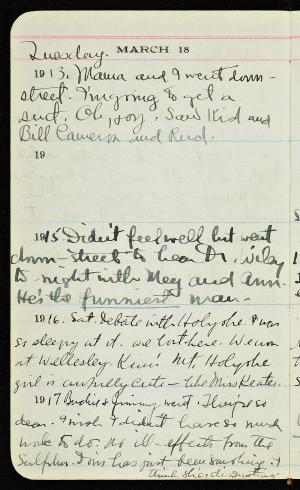 Tuesday. MARCH 18
1913. Mama and I went down-
street. I'm going to get a
suit. Oh, joy. Saw Kid and
Bill Cameron and Red.
19
1915 Didn't feel well but went
down-street to hear Dr. Wiley
to-night with Meg and Ann.
He's the funniest man.
1916. Sat. Debate with Holyoke. I was
so sleepy at it. We lost here. We won
at Wellesley. Mt. Holyoke
girl is awfully cute - like Miss Keater.
1917 and Jimmy went. They're so
dear. I wish I didn't have so much
work to do. No ill-effects from the
Sulphur. Dora has just been smoking. I
think she's